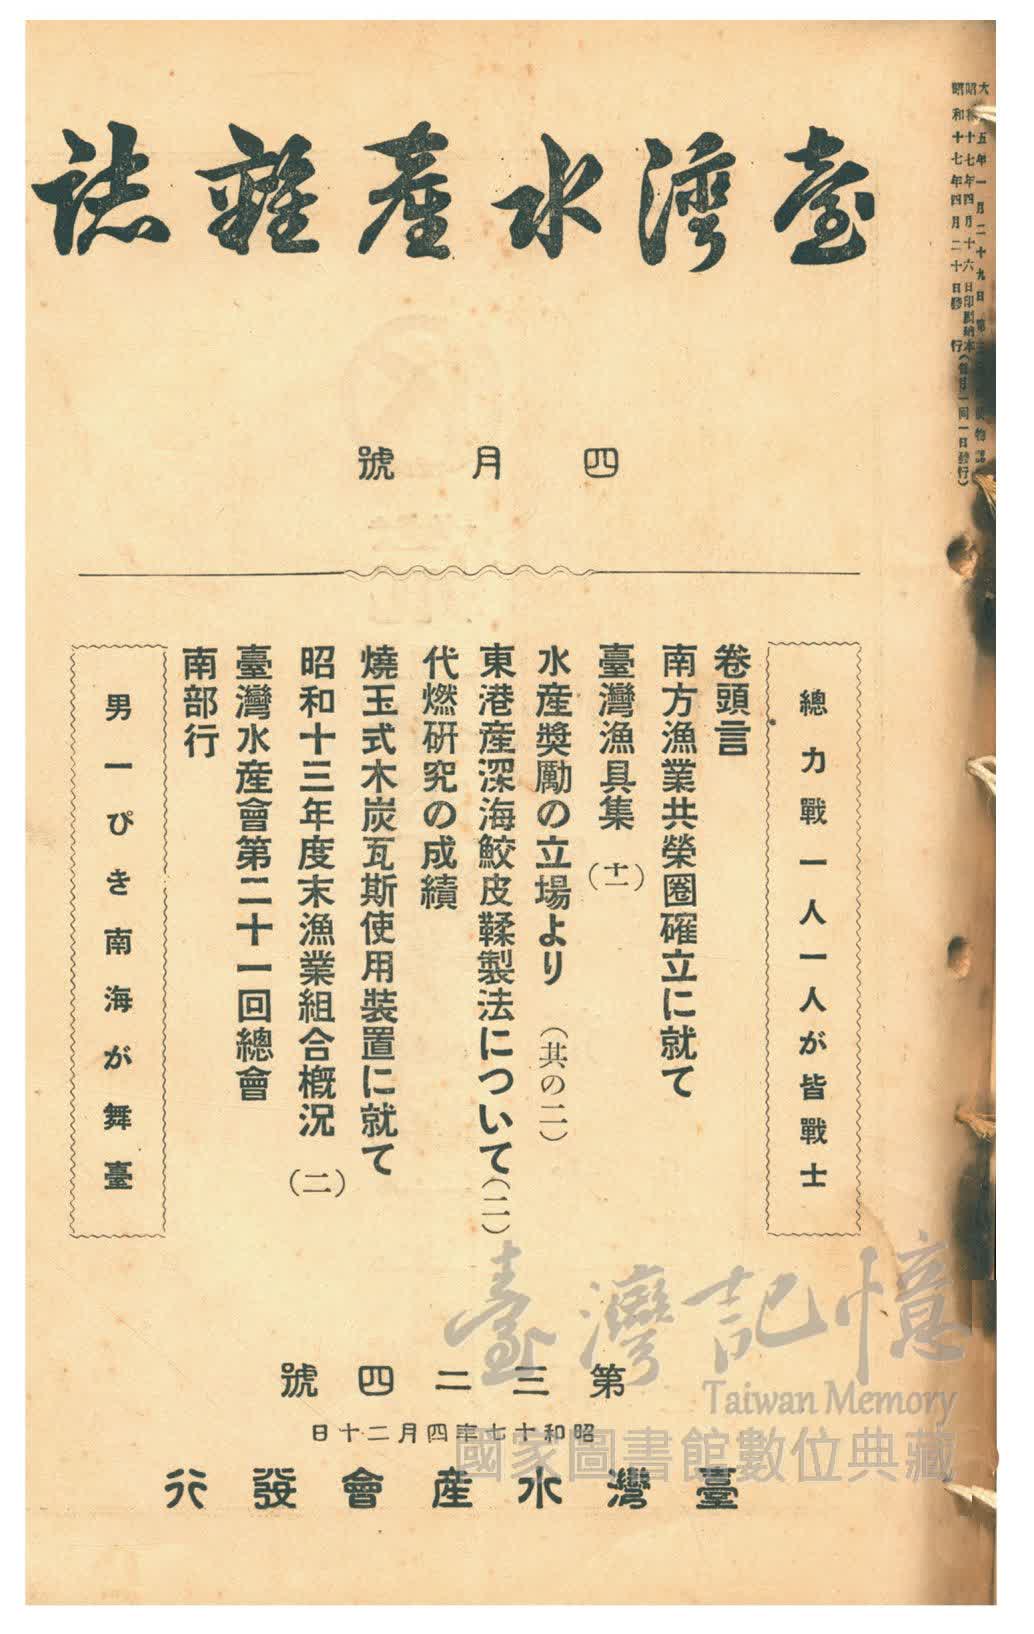 臺灣水產雜誌
昭和十七年四月十六日印刷納本(每月一回一日發行)
昭和十七年四月二十日發行
四月號
總力戰一人一人が皆戰士
卷頭言
南方漁業共榮圈確立に就て
臺灣漁具集(十一)
水產獎勵の立場より(其の二)
東港產深海鮫皮鞣製法について(二)
代燃硏究の成績
燒玉式木炭瓦斯使用裝置に就て
昭和十三年度末漁業組合槪況(二)
臺灣水產會第二十一回總會
南部行
男一ぴき南海が舞臺
第三二四號
昭和十七年四月二十日
臺灣水產會發行
臺灣記憶
Taiwan Memory
國家圖書館數位典藏